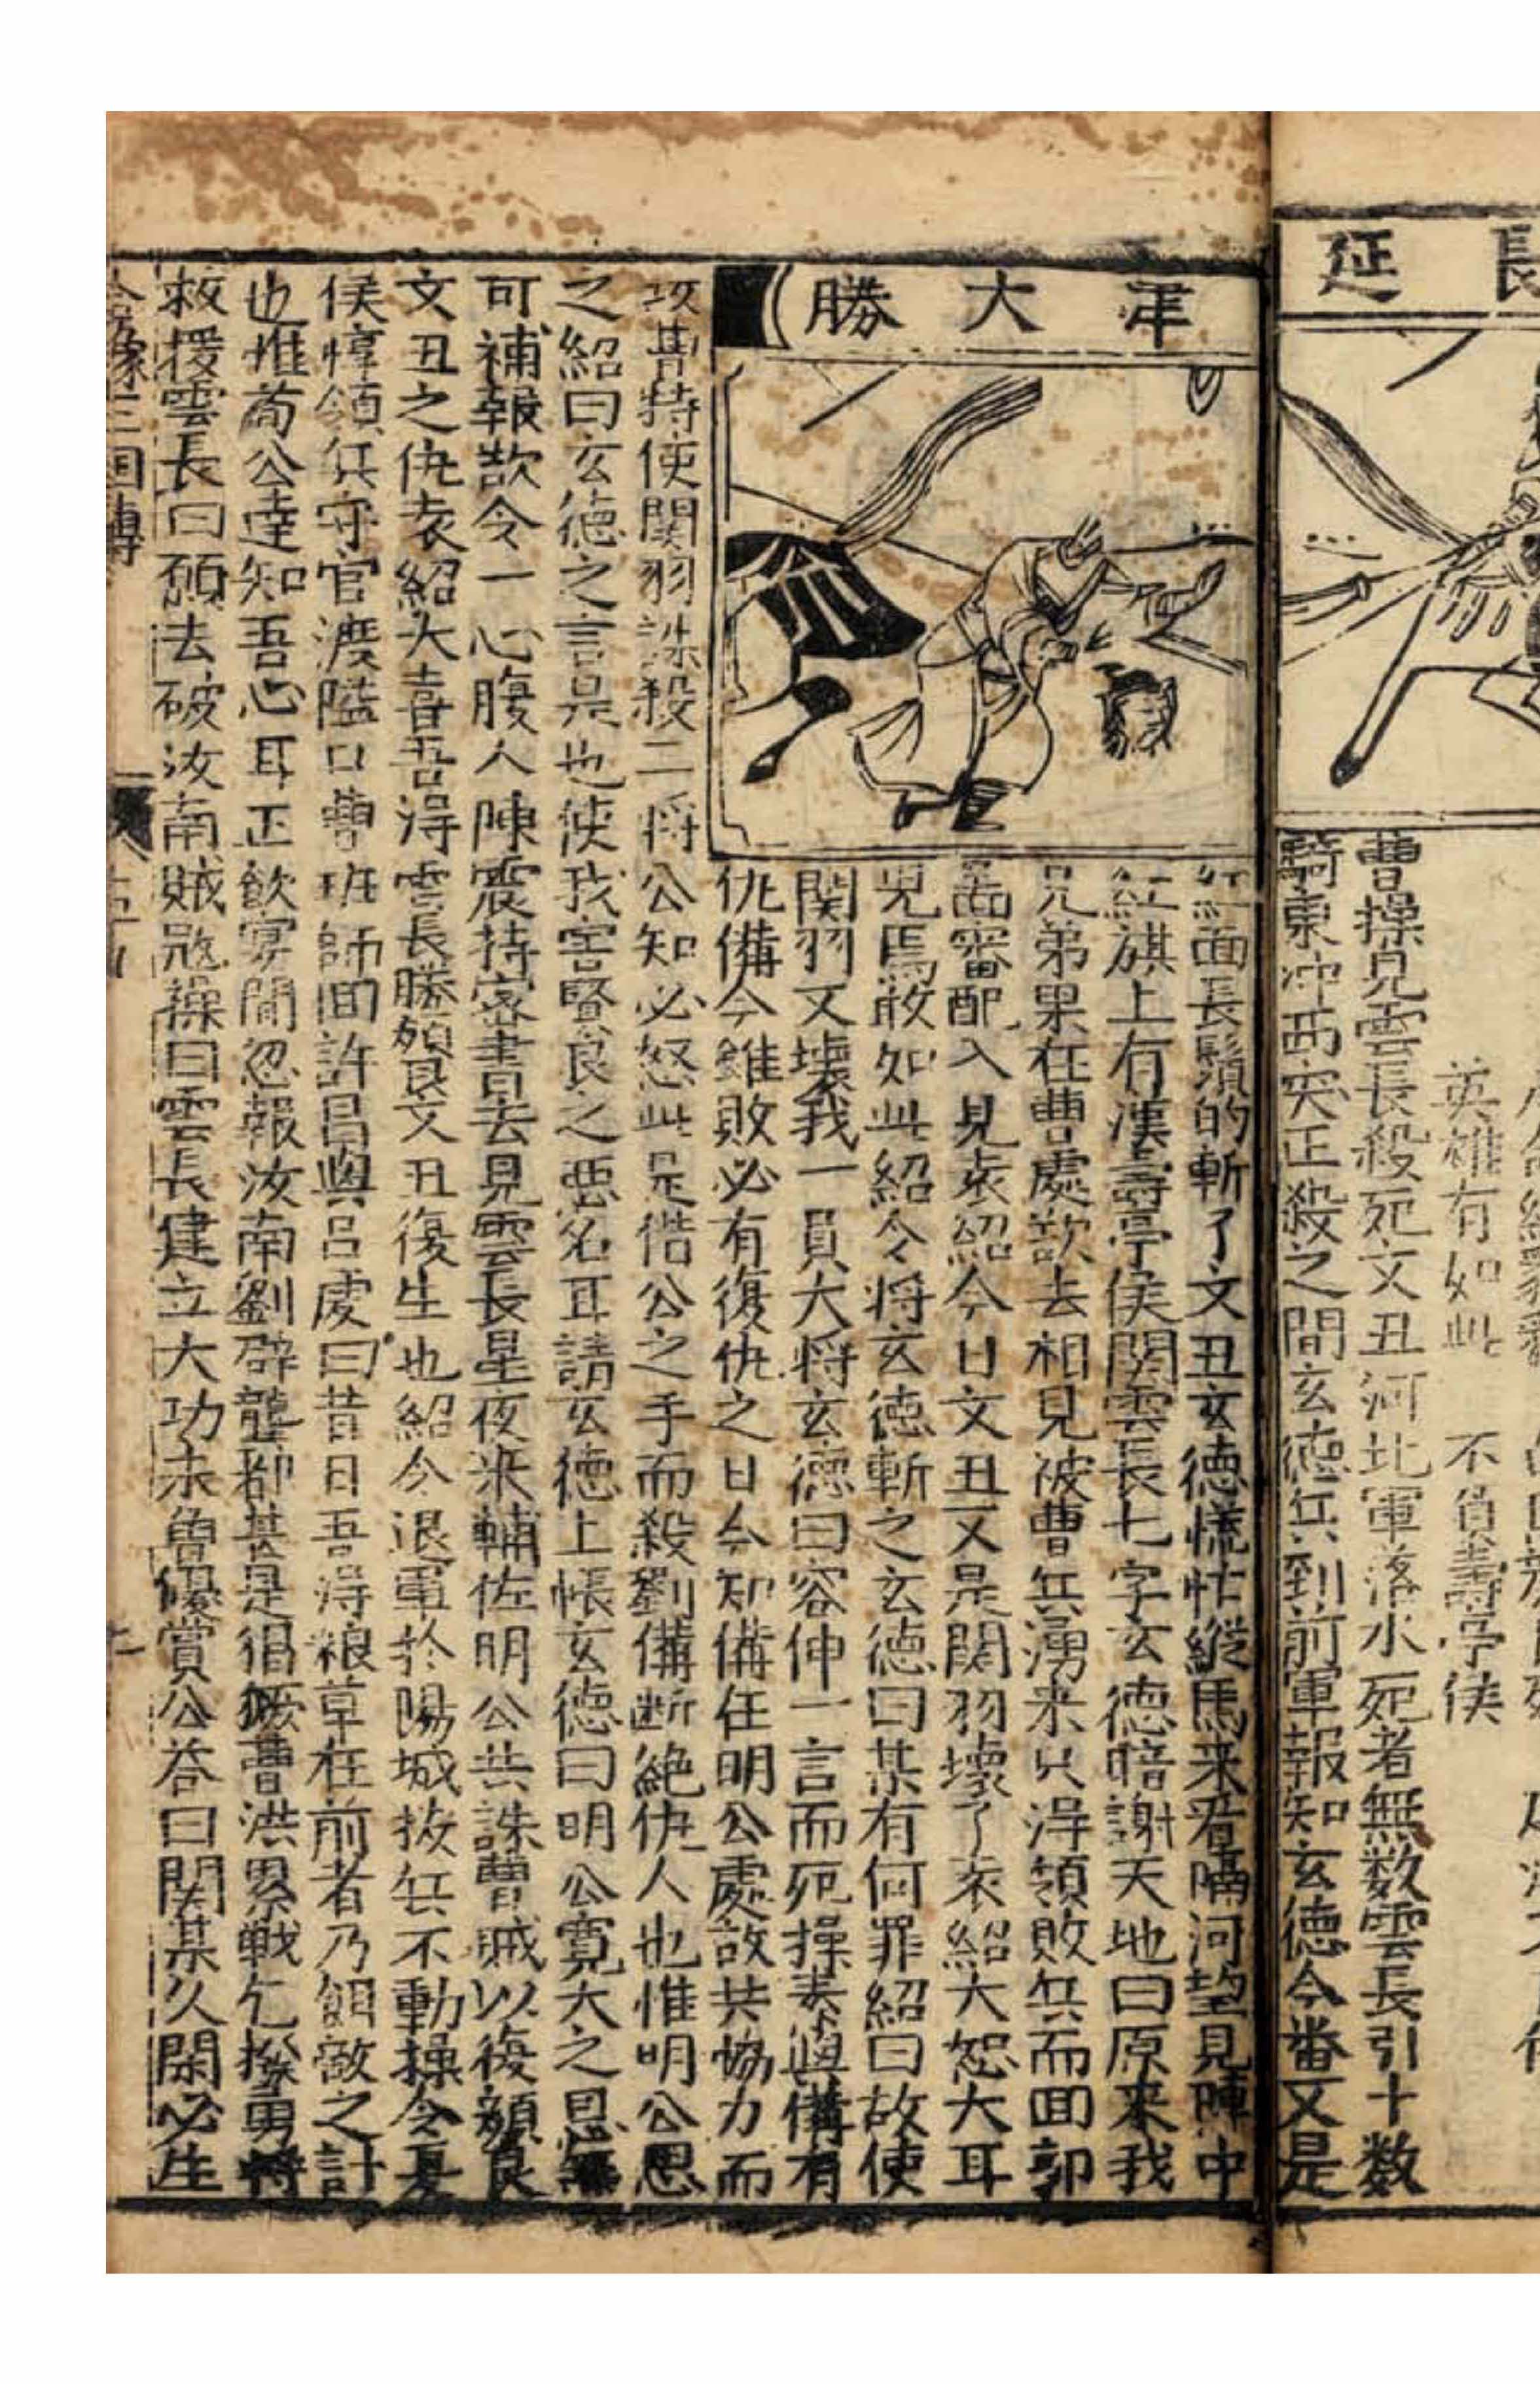 長延
英雄有如此　不負壽亭侯
曹操見雲長殺死文丑河北軍落水死者無数雲長引十数
騎東冲西突正殺之間玄德兵到前軍報知玄德今番又是
津大勝
紅面長鬚的斬了文丑玄德慌忙縱馬来看隔河望見陣中
紅旗上有漢壽亭侯関雲長七字玄德暗謝天地曰原来我
兄弟果在曹處欲去相見被曹兵湧来只得領敗兵而回郭
啚審配入見袁紹今日文丑又是関羽壊了袁紹大怒大耳
児焉敢如此紹令将玄德斬之玄德曰某有何罪紹曰故使
関羽又壊我一員大将玄德曰容伸一言而死操素與備有
仇備今雖敗必有復仇之日今知備在明公處故共恊力而
攻甞特使関羽誅殺二将公知必怒此是借公之手而殺劉備断絶仇人也惟明公思
之紹曰玄德之言是也使我害賢良之悪名耳請玄德上帳玄德曰明公寬大之恩無
可補報欲令一心腹人陳震持密書去見雲長星夜来輔佐明公共誅曹賊以復顔良
文丑之仇袁紹大喜吾得雲長勝顔良文丑復生也紹令退軍於陽城按兵不動操令夏
侯惇領兵守官渡隘口曹班師回許昌與吕虔曰昔日吾得粮草在前者乃餌敵之計
也惟荀公達知吾心耳正飲宴間忽報汝南劉辟龔都甚是猖獗曹洪累戦乞撥勇将
救援雲長曰願去破汝南賊寇操曰雲長建立大功未曽優賞公荅曰関某久閑必生
全像三国傳